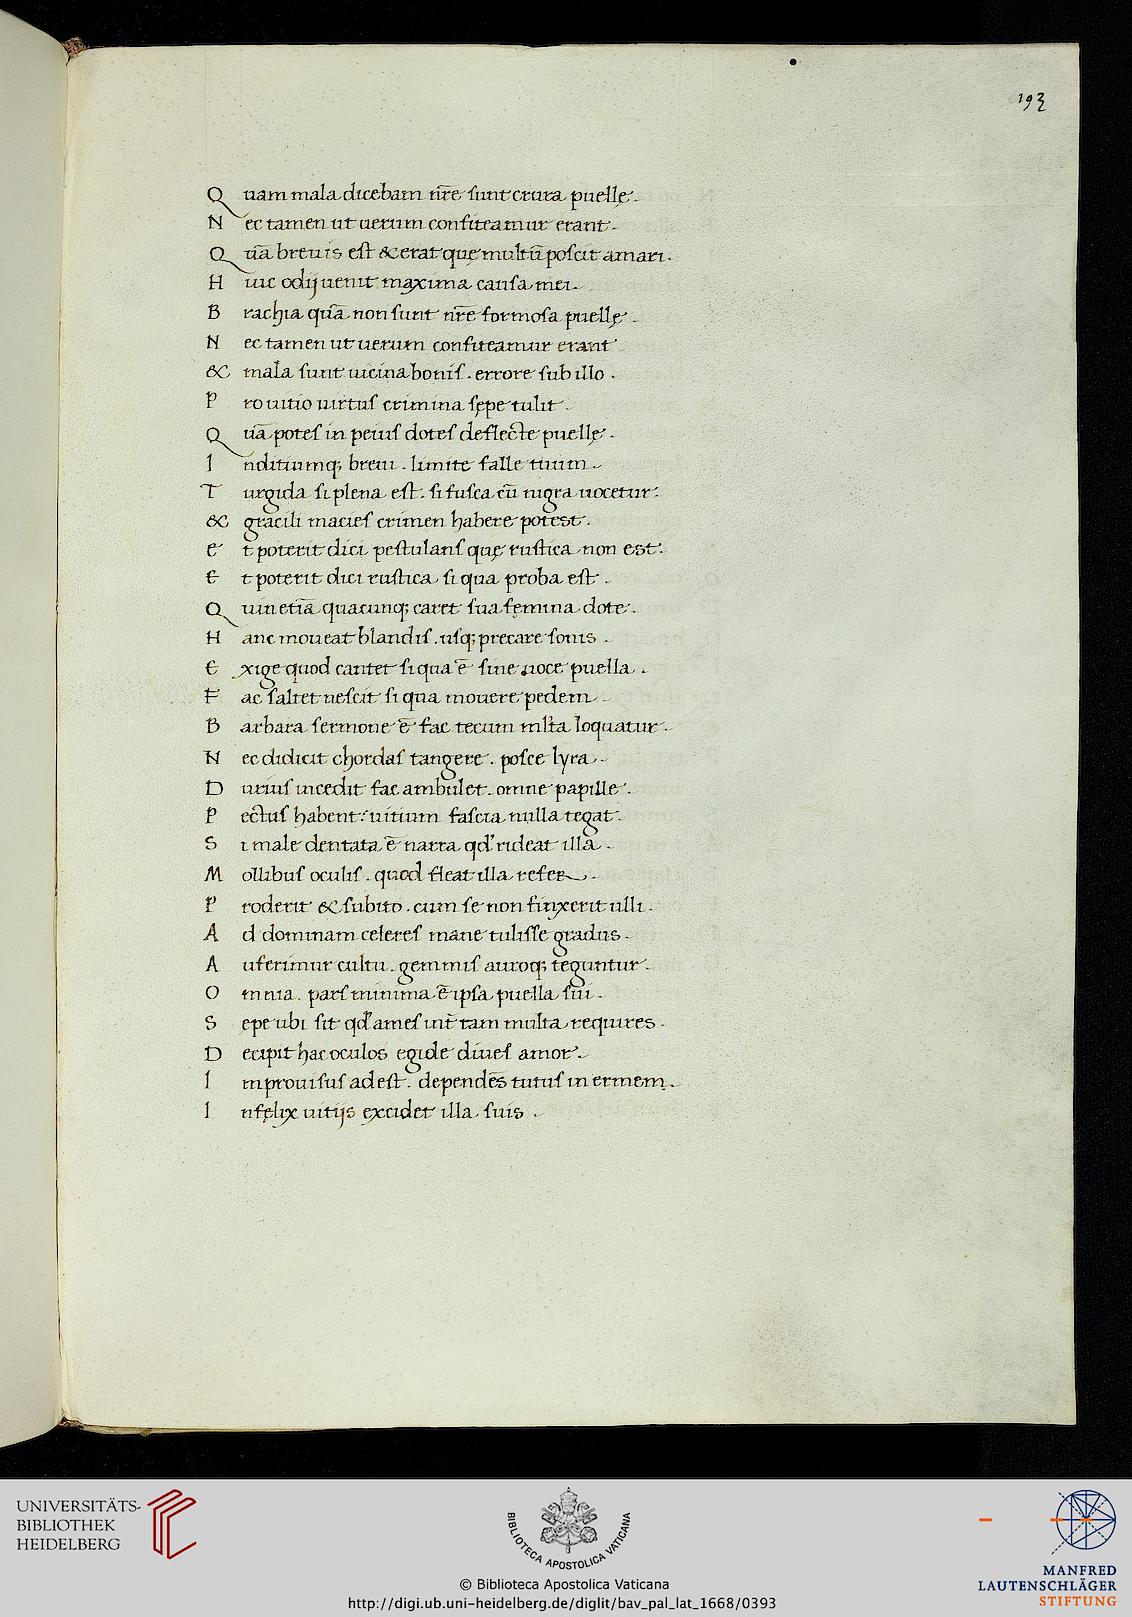 193
Quam mala dicebam nr̃e sunt crura puellę.
Nec tamen ut uerum confiteamur erant.
Quã breuis est & erat quę multũ poscit amari.
Huic odij uenit maxima causa mei.
Brachia quã non sunt nr̃e formosa puellę.
Nec tamen ut uerum confiteamur erant
& mala sunt uicina bonis. errore sub illo.
Pro uitio uirtus crimina sępe tulit.
Quã potes in peius dotes deflecte puellę.
Inditiumq; breui. limite falle tuum.
Turgida si plena est. si fusca cũ nigra uocetur.
& gracili macies crimen habere potest.
Et poterit dici pestulans quę rustica non est.
Et poterit dici rustica si qua proba est.
Quinetiã quacunq; caret sua fęmina dote.
Hanc moueat blandis. usq; precare sonis.
Exige quod cantet si qua ẽ sine uoce puella.
Fac saltet nescit si qua mouere pedem.
Barbara sermone ẽ fac tecum ml̃ta loquatur.
Nec didicit chordas tangere. posce lyra.
Durius incedit fac ambulet. omne papille.
Pectus habent: uitium fascia nulla tegat.
Si male dentata ẽ narra qd' rideat illa.
Mollibus oculis. quod fleat illa refer.
Proderit & subito. cum se non finxerit ulli.
Ad dominam celeres mane tulisse gradus.
Auferimur cultu. gemmis auroq; teguntur.
Omnia. pars minima ẽ ipsa puella sui.
Sepe ubi sit qd' ames int̃ tam multa requires.
Decipit hac oculos egide diues amor.
Improuisus adest. dependẽs tutus inermem.
Infęlix uitijs excidet illa suis.
UNIVERSITÄTS-
BIBLIOTHEK
HEIDELBERG
BIBLIOTECA APOSTOLICA VATICANA
MANFRED
LAUTENSCHLÄGER
STIFTUNG
© Biblioteca Apostolica Vaticana
http://digi.ub.uni-heidelberg.de/diglit/bav_pal_lat_1668/0393